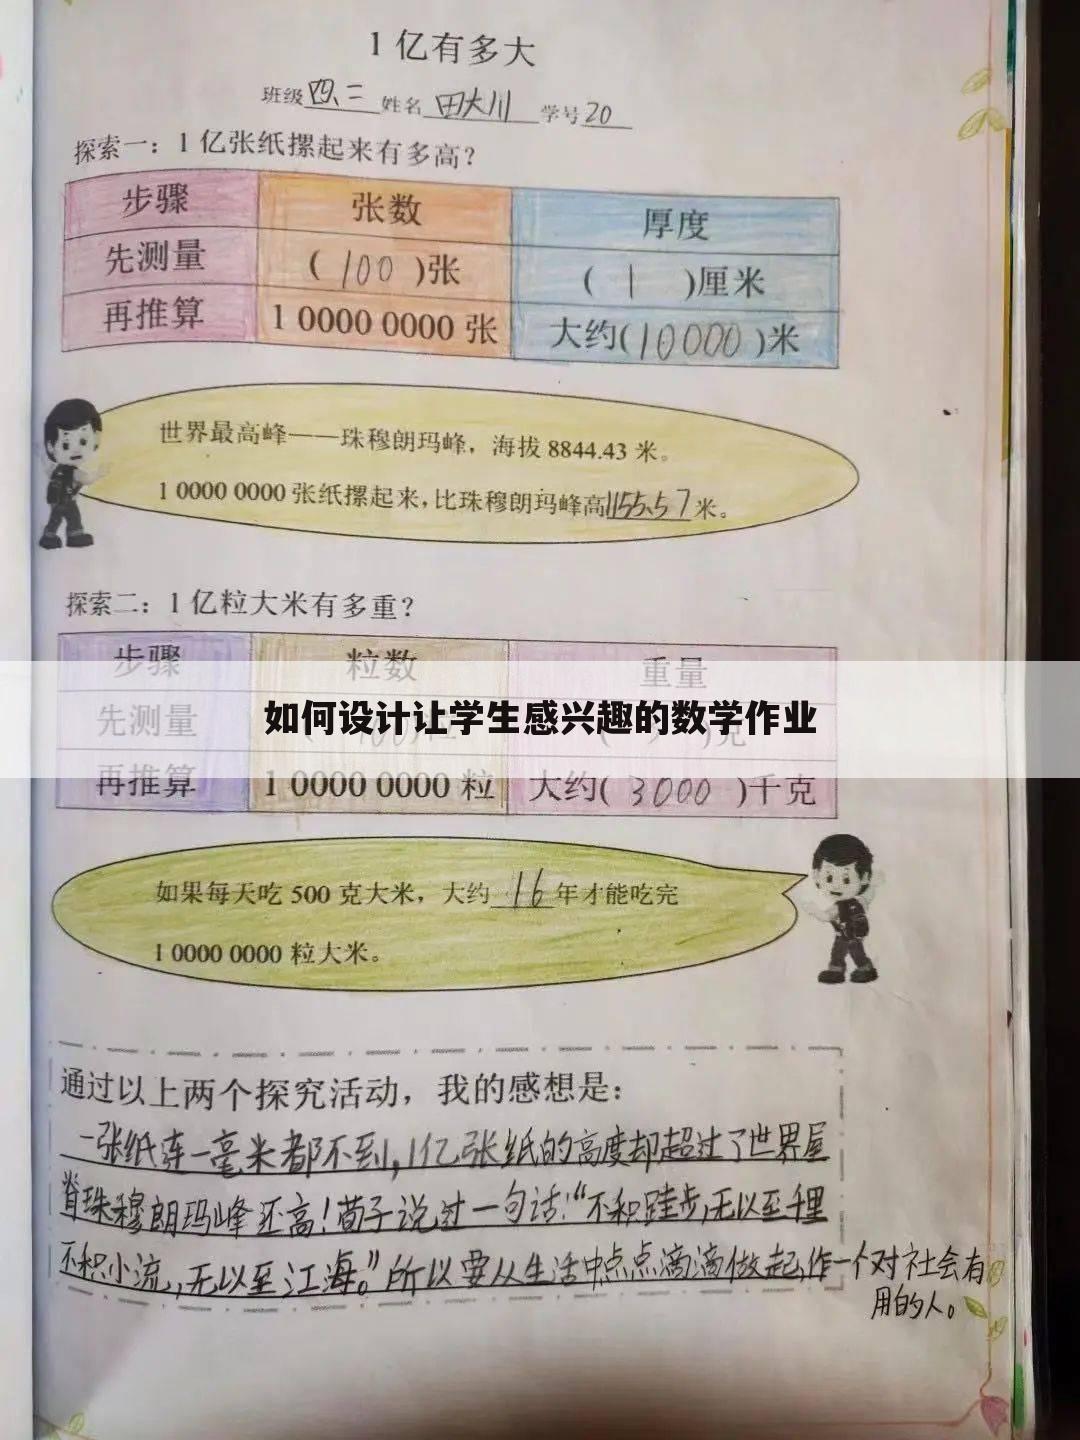 1亿有多大
班级四、二 姓名 田大川 学号 20
探索一：1亿张纸摞起来有多高？
步骤 张数 厚度
先测量 (100)张 (1)厘米
再推算 1 0000 0000 张 大约(10000)米
世界最高峰——珠穆朗玛峰，海拔 8844.43 米。
1 0000 0000 张纸摞起来，比珠穆朗玛峰高1155.57米。
探索二：1亿粒大米有多重？
步骤 粒数 重量
如何设计让学生感兴趣的数学作业
先测量 (100)粒 ( )克
再推算 1 0000 0000 粒 大约(3000)千克
如果每天吃 500 克大米，大约 16 年才能吃完
1 0000 0000 粒大米。
通过以上两个探究活动，我的感想是：
一张纸连一毫米都不到，1亿张纸的高度却超过了世界屋
脊珠穆朗玛峰还高！荀子说过一句话：“不积跬步，无以至千里
不积小流，无以至江海。”所以要从生活中点点滴滴做起，作一个对社会有
用的人。